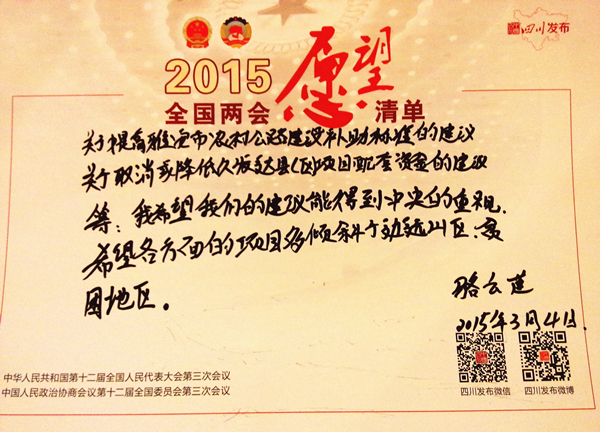 四川发布
2015
愿望
全国两会 清单
关于提高雅安市农村公路建设补助标准的建议
关于取消或降低欠发达县(区)项目配套资金的建议
等;我希望我们的建议能得到中央的重视.
希望各方面的项目多倾斜于边远山区、贫
困地区。
骆云莲
2015年3月4日.
中华人民共和国第十二届全国人民代表大会第三次会议
中国人民政治协商会议第十二届全国委员会第三次会议
四川发布微信 四川发布微博